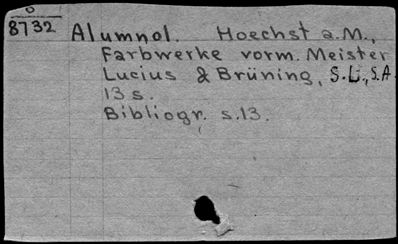 0
8732
Alumnol. Hoechst a.M.,
Farbwerke vorm. Meister
Lucius & Brüning, S.L., S.A.
13 s.
Bibliogr. s.13.